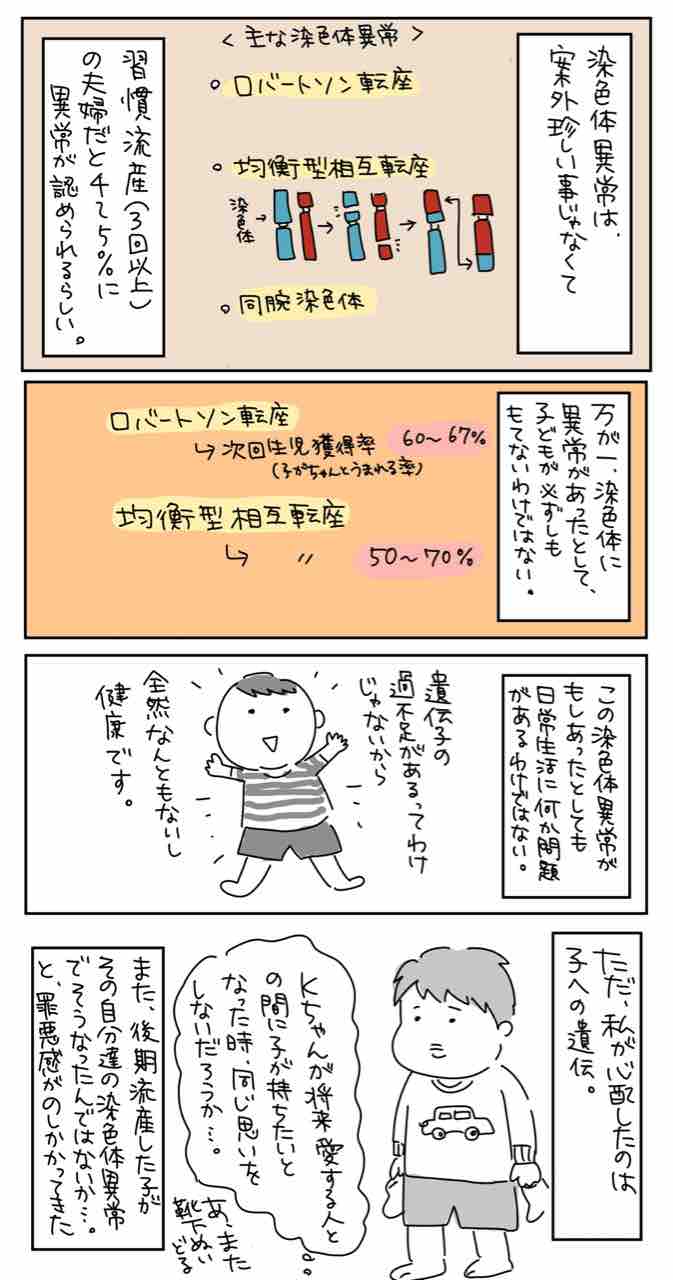 染色体異常は、
案外珍しい事じゃなくて
＜主な染色体異常＞
○ロバートソン転座
○均衡型相互転座
染色体→
○同腕染色体
習慣流産(3回以上)
の夫婦だと4〜5%に
異常が認められるらしい。
万が一、染色体に
異常があったとして、
子どもが必ずしも
もてないわけではない。
ロバートソン転座
↳次回生児獲得率 60〜67%
(子がちゃんとうまれる率)
均衡型相互転座
↳ 〃 50〜70%
この染色体異常が
もしあったとしても
日常生活に何か問題
があるわけではない。
遺伝子の
過不足があるってわけ
じゃないから
全然なんともないし
健康です。
ただ、私が心配したのは
子への遺伝。
Kちゃんが将来愛する人と
の間に子が持ちたいと
なった時、同じ思いを
しないだろうか…。
あ、また
靴下ぬい
どる
また、後期流産した子が
その自分達の染色体異常
でそうなったんではないか…。
と、罪悪感がのしかかってきた